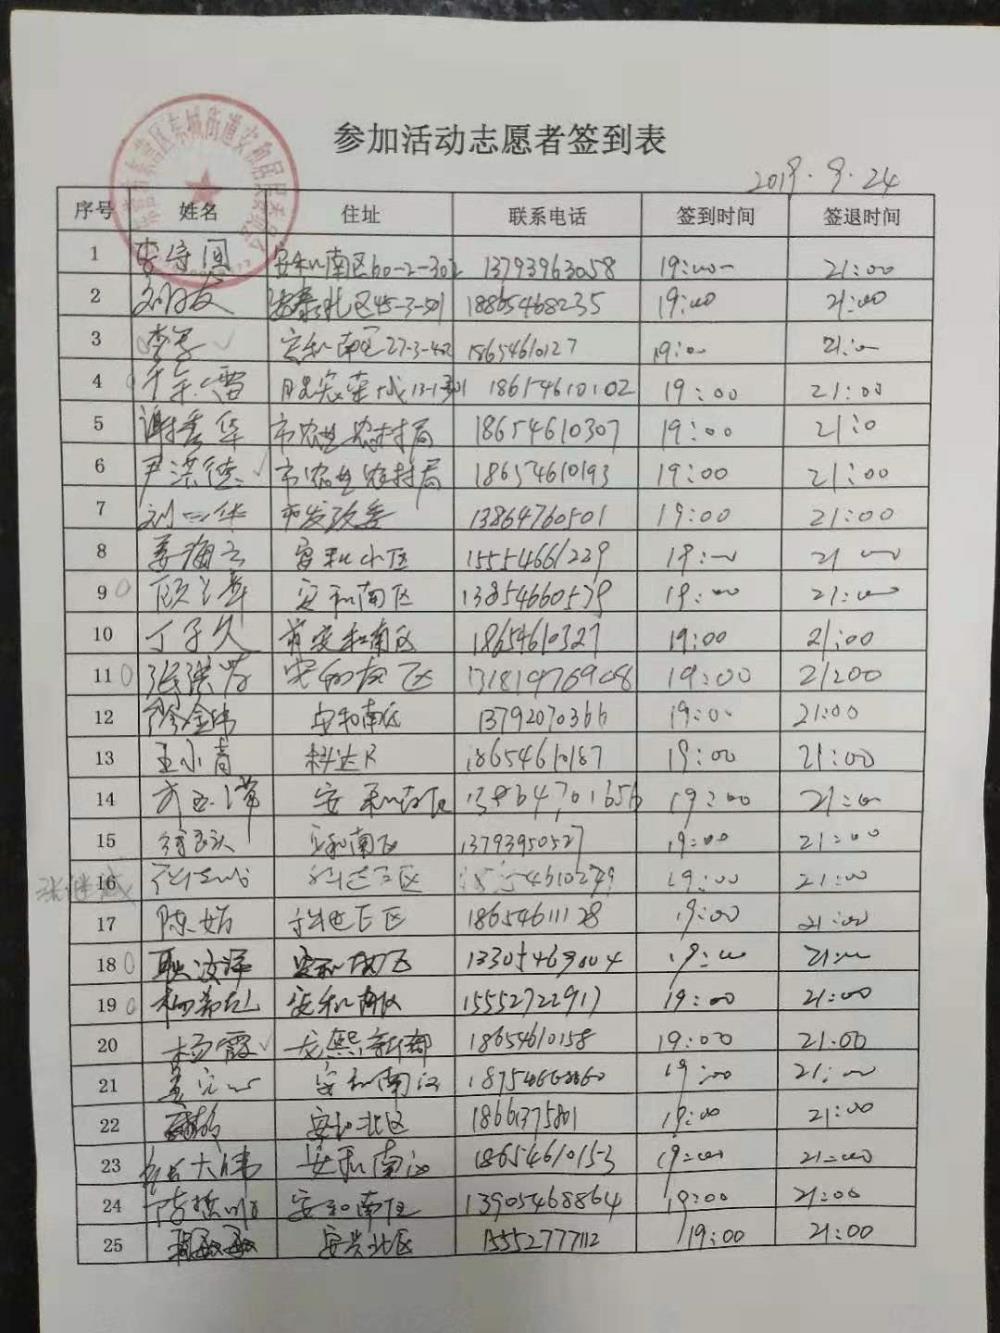 参加活动志愿者签到表
2019.9.24
序号 姓名 住址 联系电话 签到时间 签退时间
1 安和南区60-2-302 13793963058 19:00 21:00
2 北区45-3-501 18865468235 19:00 21:00
3 安和南区27-3-402 18654610127 19:00 21:00
4 13-1-301 18654610102 19:00 21:00
5 谢秀华 市农业农村局 18654610307 19:00 21:0
6 尹洪德 市农业农村局 18654610193 19:00 21:00
7 刘二华 市发改委 13864760501 19:00 21:00
8 姜海云 富和小区 15554661229 19:00 21:00
9 顾兰萍 安和南区 13854660579 19:00 21:00
10 丁子久 安和南区 18654610327 19:00 21:00
11 张洪芳 安和南区 13181976908 19:00 21:00
12 徐金伟 安和南区 13792070366 19:00 21:00
13 王小青 科达 18654610187 19:00 21:00
14 安和南区 13864701656 19:00 21:00
15 安和南区 13793950527 19:00 21:00
张继成
16 19:00 21:00
17 陈娟 18654611128 19:00 21:00
18 耿波洋 安和南区 13305469004 19:00 21:00
19 安和南区 15552722917 19:00 21:00
20 杨霞 龙熙新都 18654610158 19:00 21:00
21 安和南区 19:00 21:00
22 安和北区 18661375801 19:00 21:00
23 大伟 安和南区 18654610153 19:00 21:00
24 安和南区 13905468864 19:00 21:00
25 安兴北区 15552777112 19:00 21:00